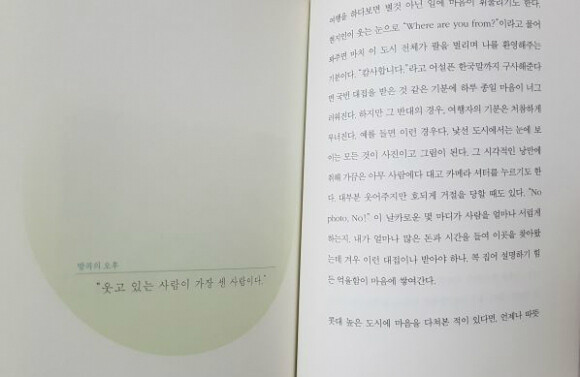 방콕의 오후
"웃고 있는 사람이 가장 센 사람이다."
여행을 하다보면 별것 아닌 일에 마음이 휘둘리기도 한다.
현지인이 웃는 눈으로 "Where are you from?"이라고 물어
봐주면 마치 이 도시 전체가 팔을 벌리며 나를 환영해주는
기분이다. "감사합니다."라고 어설픈 한국말까지 구사해준다
면 국빈 대접을 받은 것 같은 기분에 하루 종일 마음이 너그
러워진다. 하지만 그 반대의 경우, 여행자의 기분은 처참하게
무너진다. 예를 들면 이런 경우다. 낯선 도시에서는 눈에 보
이는 모든 것이 사진이고 그림이 된다. 그 시각적인 낭만에
취해 가끔은 아무 사람에다 대고 카메라 셔터를 누르기도 한
다. 대부분 웃어주지만 호되게 거절을 당할 때도 있다. "No
photo, No!" 이 날카로운 몇 마디가 사람을 얼마나 서럽게
하는지. 내가 얼마나 많은 돈과 시간을 들여 이곳을 찾아왔
는데 겨우 이런 대접이나 받아야 하나. 콕 집어 설명하기 힘
든 억울함이 마음에 쌓여간다.
콧대 높은 도시에 마음을 다쳐본 적이 있다면, 언제나 따뜻